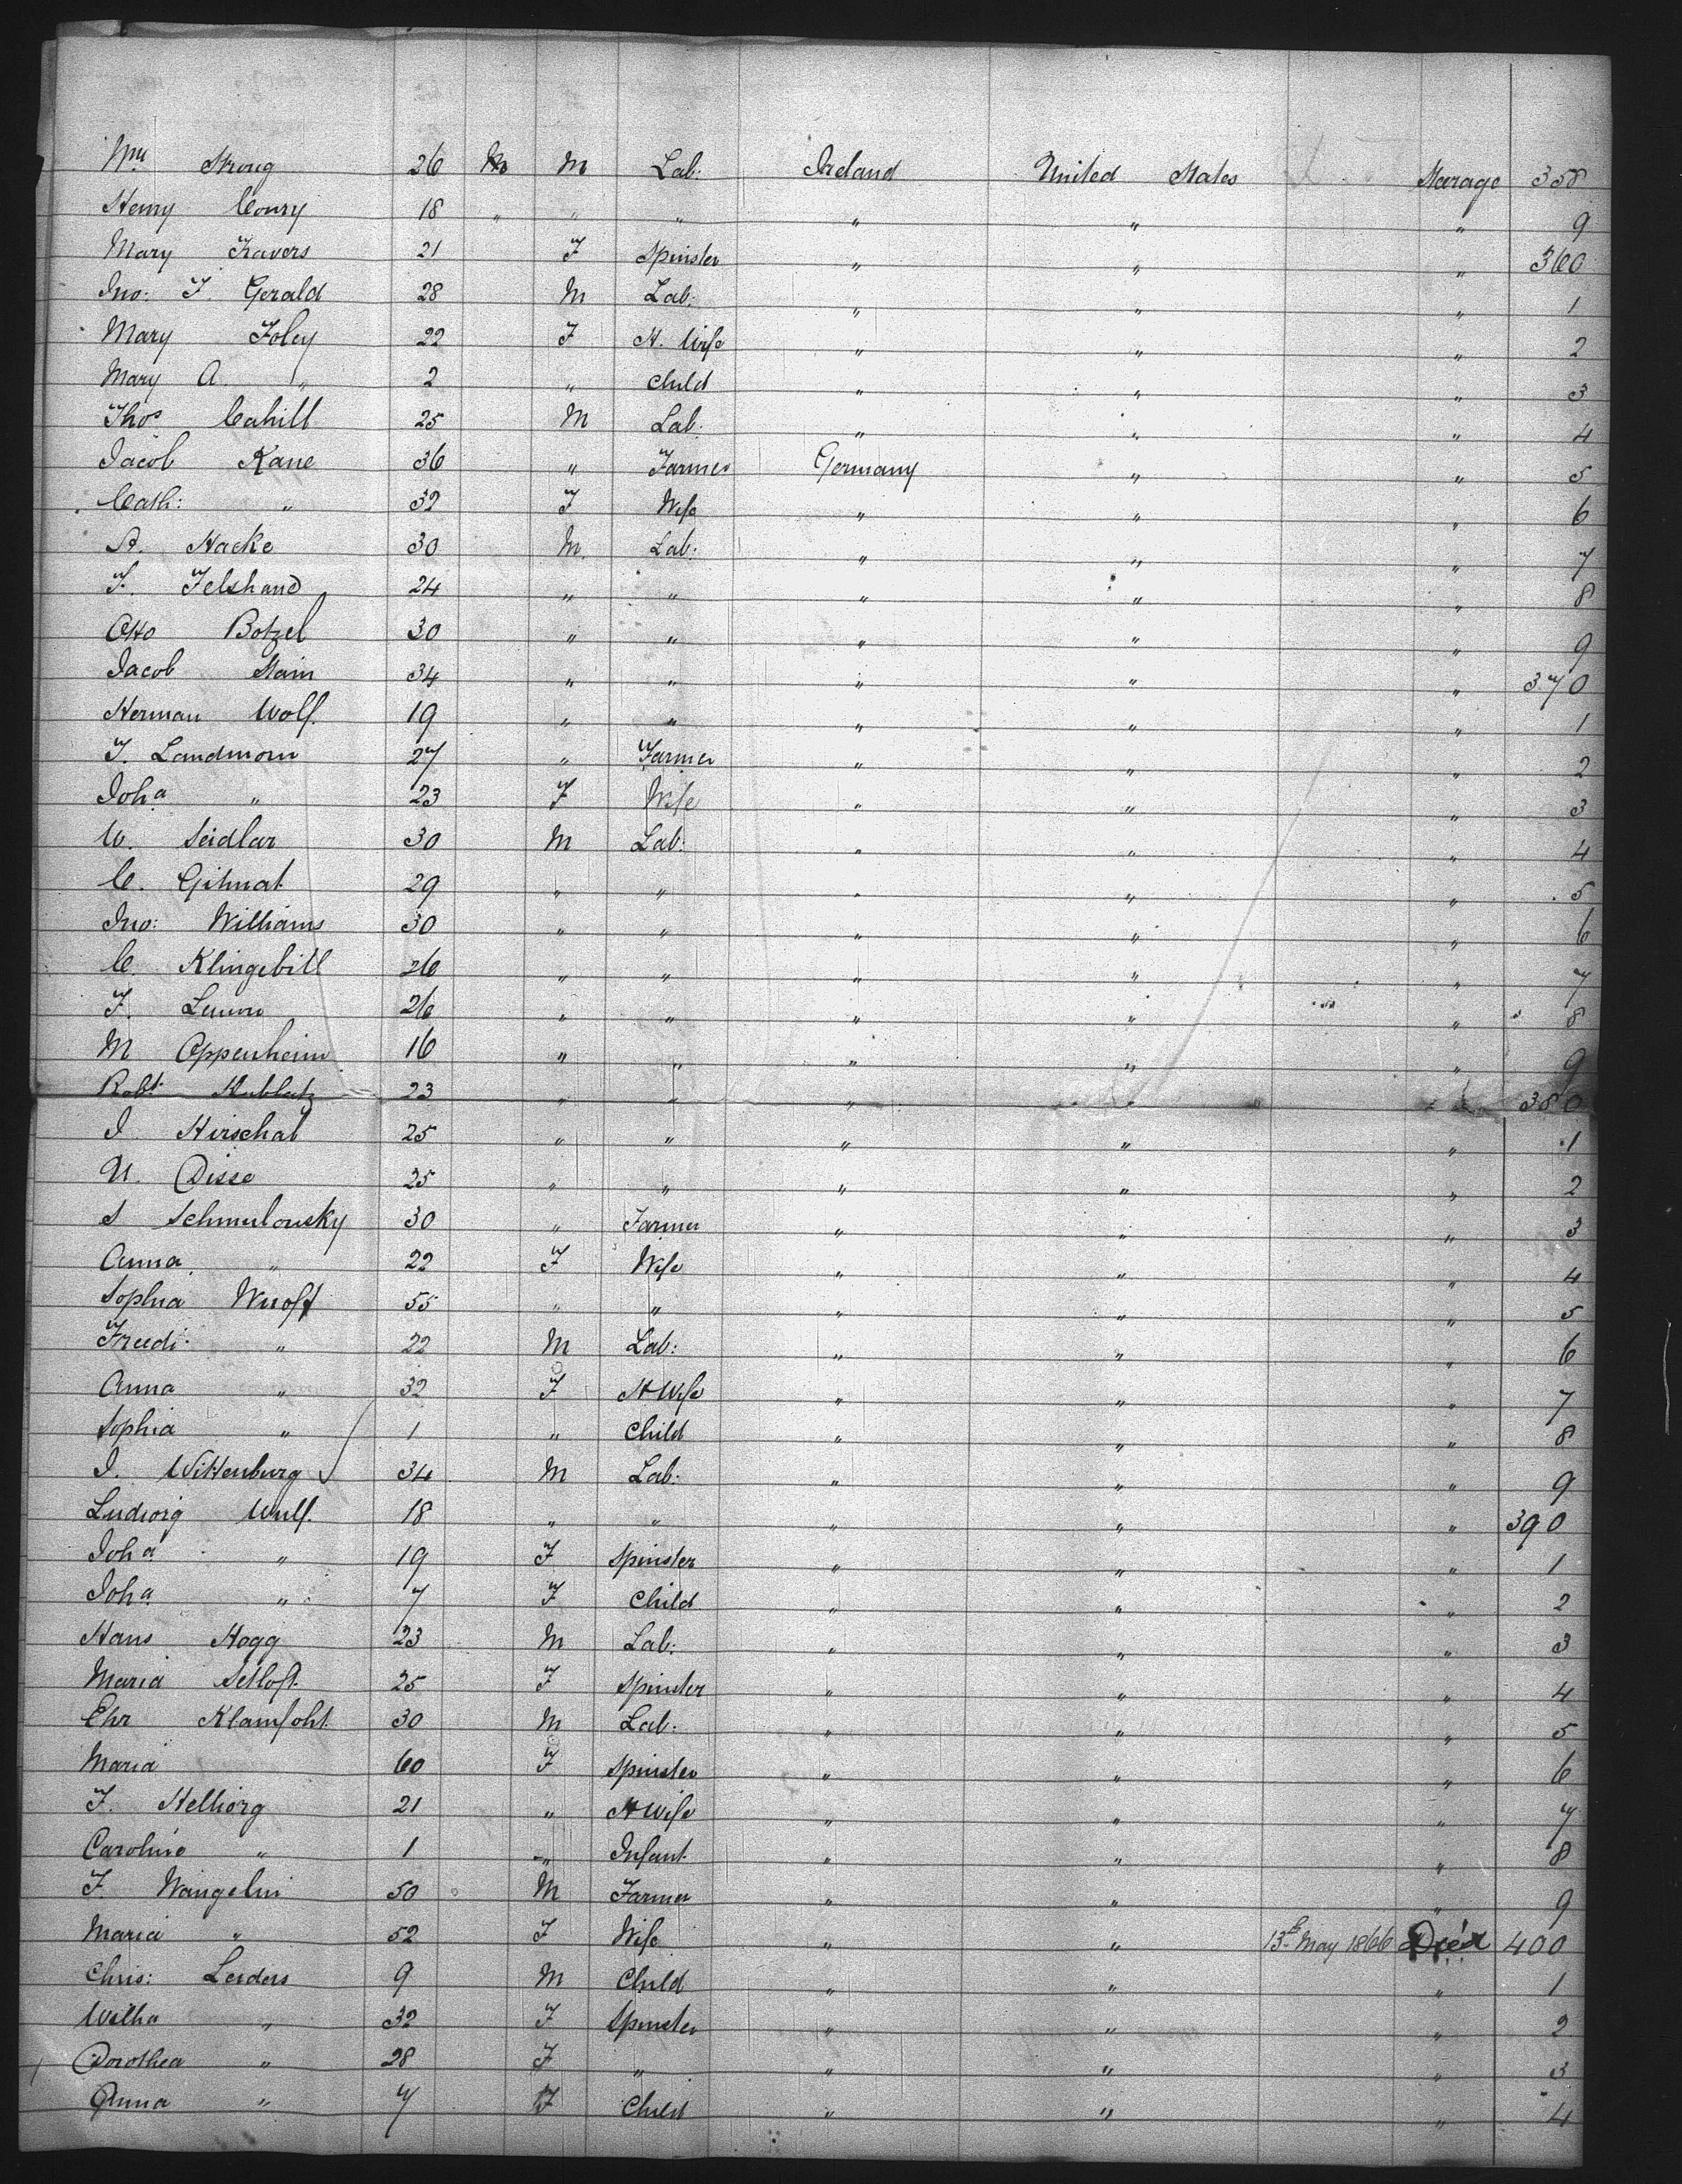 Wm Strong 26 M M Lab: Ireland United States Starage 358
Henry Conry 18 " " " " " " 9
Mary Travers 21 F Spinster " " " 360
Jno: F. Gerald 28 M Lab: " " " 1
Mary Foley 22 F H. Wife " " " 2
Mary A. " 2 " Child " " " 3
Thos Cahill 25 M Lab: " " " 4
Jacob Kane 36 " Farmer Germany " " 5
Cath: " 32 F Wife " " " 6
A. Hacke 30 M. Lab: " " " 7
F. Felshand 24 " " " " " 8
Otto Botzel 30 " " " " " 9
Jacob Stain 34 " " " " " 370
Herman Wolf. 19 " " " " " 1
T. Landmom 27 " Farmer " " " 2
Joha " 23 F Wife " " " 3
W. Seidlar 30 M Lab: " " " 4
C. Gitmat 29 " " " " " 5
Jno: Williams 30 " " " " " 6
C. Klingebill 26 " " " " " 7
F. 26 " " " " " 8
M Oppenheim 16 " " " " " 9
Robt. 23 " " " " " 380
I Hirschal 25 " " " " " 1
U. Disse 25 " " " " " 2
S Schmulowsky 30 " Farmer " " " 3
Anna " 22 F Wife " " " 4
Sophia 55 " " " " " 5
Freedi " 22 M Lab: " " " 6
Anna " 32 F H Wife " " " 7
Sophia " 1 " Child " " " 8
I. Wittenburg 34 M Lab: " " " 9
Ludwig Wulf. 18 " " " " " 390
Joha " 19 F Spinster " " " 1
Joha " 7 F Child " " " 2
Hans Hogg 23 M Lab: " " " 3
Maria Setloft 25 F Spinster " " " 4
Chr Klamfoht 30 M Lab: " " " 5
Maria 60 F Spinster " " " 6
F. Helborg 21 " H Wife " " " 7
Caroline " 1 " Infant " " " 8
F. Wangelin 50 M Farmer " " " 9
Maria " 52 F Wife " " 13th May 1866 Died 400
Chris: Leiders 9 M Child " " " 1
Wilha " 32 F Spinster " " " 2
Dorothea " 28 F " " " " 3
Anna " 7 F Child " " " 4